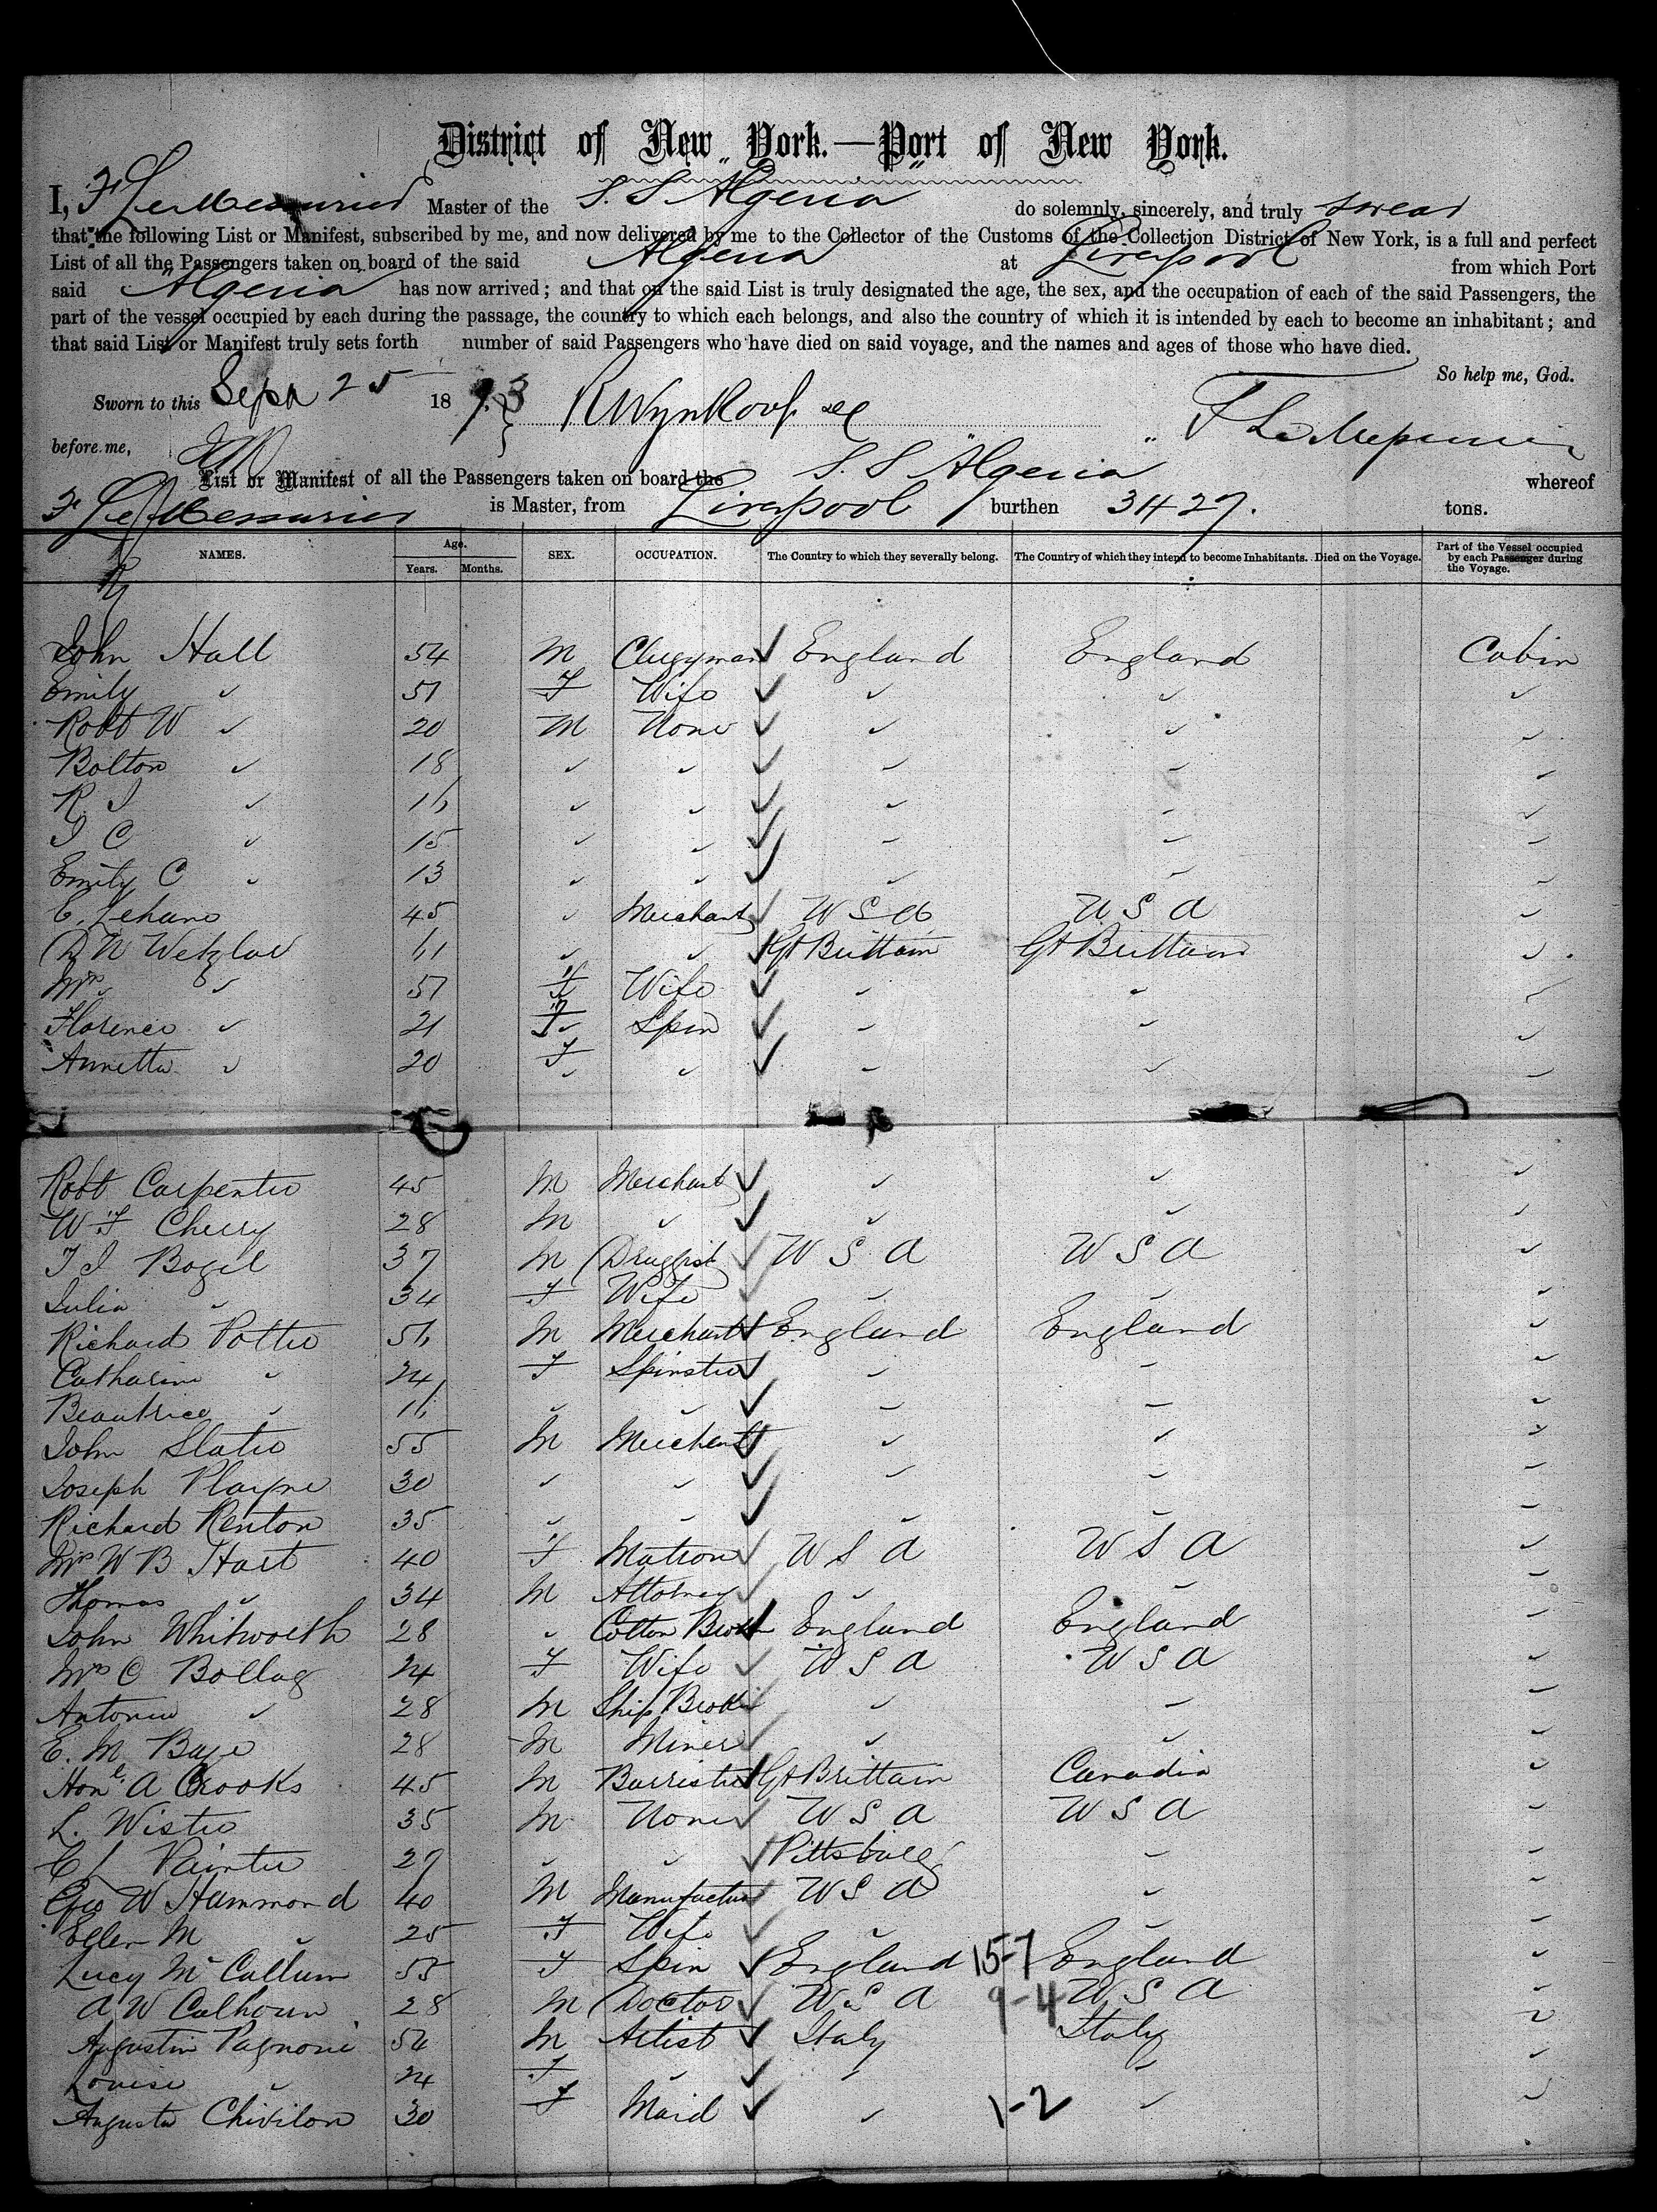 District of New York.—Port of New York.
I, F Le Messurier Master of the S. S "Algeria" do solemnly, sincerely, and truly swear
that the following List or Manifest, subscribed by me, and now delivered by me to the Collector of the Customs of the Collection District of New York, is a full and perfect
List of all the Passengers taken on board of the said Algeria at Liverpool from which Port
said "Algeria" has now arrived; and that on the said List is truly designated the age, the sex, and the occupation of each of the said Passengers, the
part of the vessel occupied by each during the passage, the country to which each belongs, and also the country of which it is intended by each to become an inhabitant; and
that said List or Manifest truly sets forth number of said Passengers who have died on said voyage, and the names and ages of those who have died.
So help me, God.
Sworn to this Sept 25 1873 R Wynkoop
before me, F Le Messurier
List or Manifest of all the Passengers taken on board the S. S "Algeria" whereof
F Le Messurier is Master, from Liverpool burthen 3427. tons.
NAMES. Age. Years. Months. SEX. OCCUPATION. The Country to which they severally belong. The Country of which they intend to become Inhabitants. Died on the Voyage. Part of the Vessel occupied by each Passenger during the Voyage.
John Hall 54 M Clergyman England England Cabin
Emily " 51 F Wife " " "
Robt W " 20 M None " " "
Bolton " 18 " " " " "
R. J " 16 " " " " "
J C " 15 " " " " "
Emily C " 13 " " " " "
C. Lehano 45 " Merchant U S A U S A "
D N Wetzlar 61 " " Gt Brittain Gt Brittain "
Mrs " 51 F Wife " " "
Florence " 21 F Spin " " "
Annetta " 20 F " " " "
Robt Carpenter 45 M Merchant " " "
W F Cherry 28 M " " " "
T J Bogel 37 M Druggist U S A U S A "
Julia " 34 F Wife " " "
Richard Potter 56 M Merchant England England "
Catharine " 24 F Spinster " " "
Beautrice " 16 " " " " "
John Slater 55 M Merchant " " "
Joseph Playne 30 " " " " "
Richard Renton 35 " " " " "
Mrs W B Hart 40 F Matron U S A U S A "
Thomas " 34 M Attorney " " "
John Whitworth 28 " Cotton Brok England England "
Mrs C Bollag 24 F Wife U S A U S A "
Antonio " 28 M Ship Broker " " "
E. M Baye 28 M Miner " " "
Honl. A Crooks 45 M Barrister Gt Brittain Canadia "
L. Wister 35 M None U S A U S A "
C L Painter 27 " " Pittsburg " "
Geo W Hammond 40 M Manufactur U S A " "
Ellen M " 25 F Wife " " "
Lucy McCallum 55 F Spin England 15-7 England "
A W Calhoun 28 M Doctor U S A 9-4 U S A "
Augustin Pagnoni 54 M Artist Italy Italy "
Louise " 24 F " " " "
Augusta Chivilon 30 F Maid " 1-2 " "